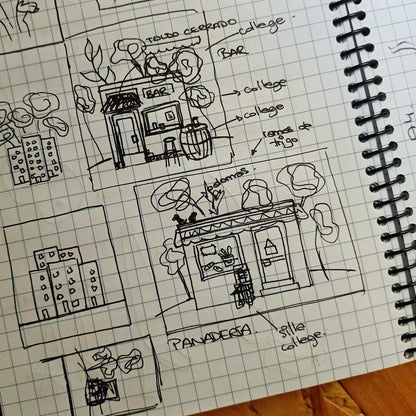 TOLDO CERRADO
college
BAR
BAR
college
college
ramas de
trigo
palomas
PANADERÍA.
silla
college.